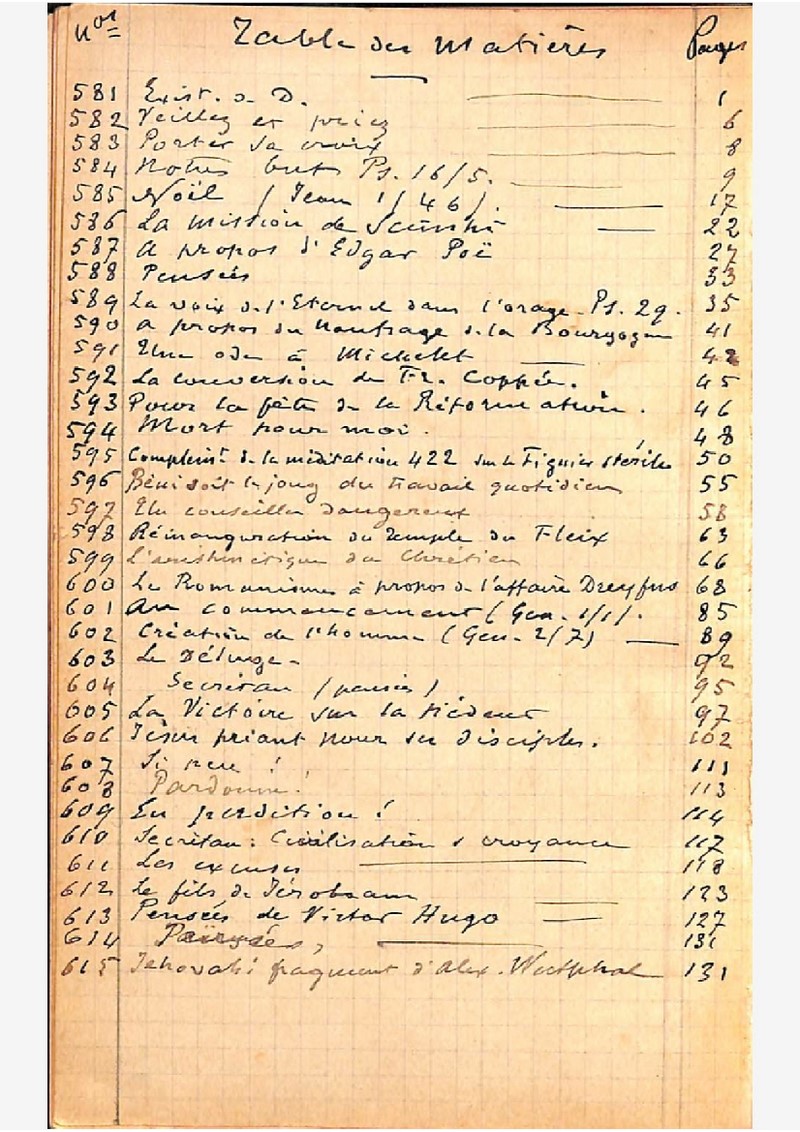 Nos Table des Matières Pages
581 Exist. de D. 1
582 Veillez et priez 6
583 Porter sa croix 8
584 Notre but Ps. 16/5. 9
585 Noël (Jean 1/46). 17
586 La mission de 22
587 A propos d'Edgar Poë 27
588 Pensées 33
589 La voix de l'Eternel dans l'orage. Ps. 29. 35
590 A propos du Naufrage de la Bourgogne 41
591 Une ode à Michelet 42
592 La conversion de Fr. Coppée. 45
593 Pour la fête de la Réformation. 46
594 Mort pour moi. 48
595 Complémt de la méditation 422 sur le Figuier stérile 50
596 Béni soit le joug du travail quotidien 55
597 Un conseiller dangereux 58
598 Réinauguration du Temple du Fleix 63
599 L'arithmétique du Chrétien 66
600 Le Romanisme à propos de l'affaire Dreyfus 68
601 Au commencement (Gen. 1/1). 85
602 Création de l'homme (Gen. 2/7) 89
603 Le Déluge. 92
604 Secrétan (pensées) 95
605 La Victoire sur la tiédeur 97
606 Jésus priant pour ses disciples. 102
607 Si peu ! 111
608 Pardonne! 113
609 En perdition ! 114
610 Secrétan: Civilisation & croyance 117
611 Les excuses 118
612 Le fils de Jéroboam 123
613 Pensées de Victor Hugo 127
614 131
615 Jehovah! fragment d'Alex. Westphal 131